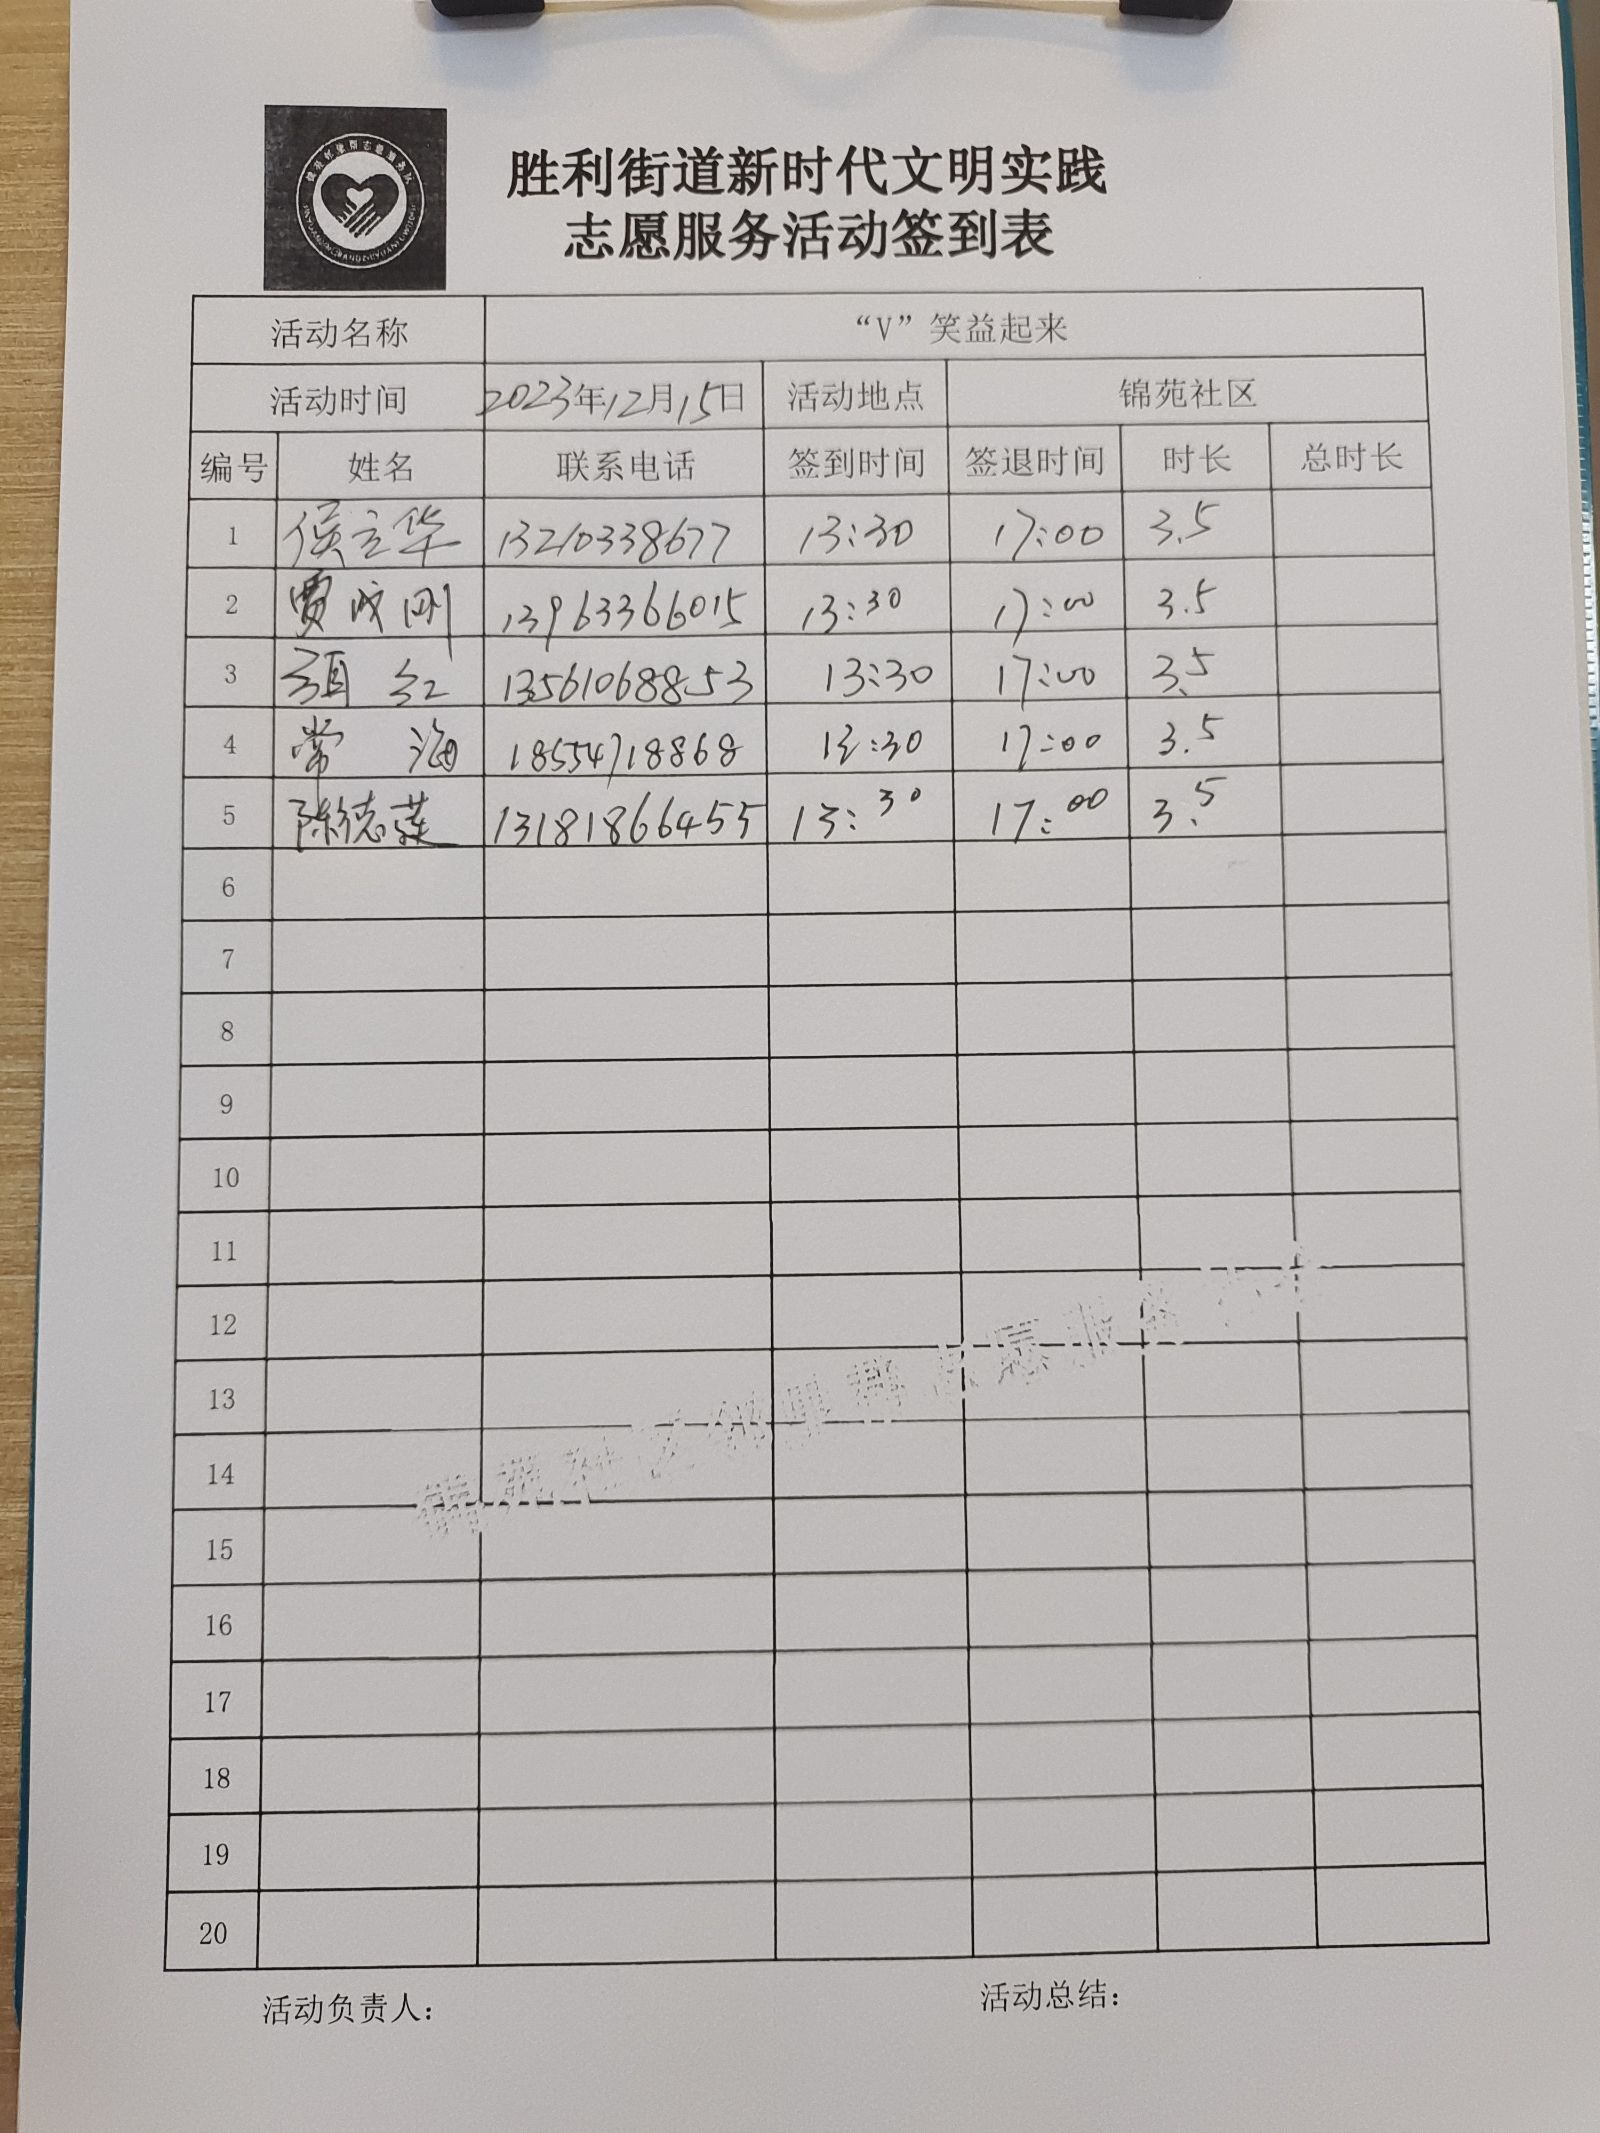 胜利街道新时代文明实践
志愿服务活动签到表
活动名称 “V”笑益起来
活动时间 2023年12月15日 活动地点 锦苑社区
编号 姓名 联系电话 签到时间 签退时间 时长 总时长
1 侯立华 13210338677 13:30 17:00 3.5
2 贾成刚 13963366015 13:30 17:00 3.5
3 红 13561068853 13:30 17:00 3.5
4 常海 18554718868 13:30 17:00 3.5
5 陈德莲 13181866455 13:30 17:00 3.5
6
7
8
9
10
11
12
13
14
15
16
17
18
19
20
锦苑社区邻里帮志愿服务
活动负责人: 活动总结: